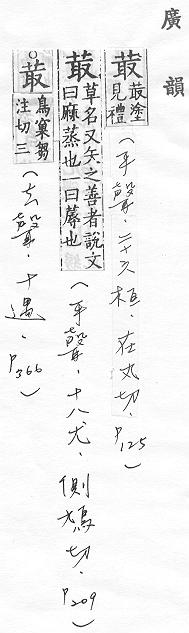 廣韻
菆菆塗見禮(平聲.二十六桓.在丸切.P125)
菆草名又矢之善者說文曰麻蒸也一曰蓐也(平聲.十八尤.側鳩切.P209)
○菆鳥窠芻注切三(去聲.十遇.P366)